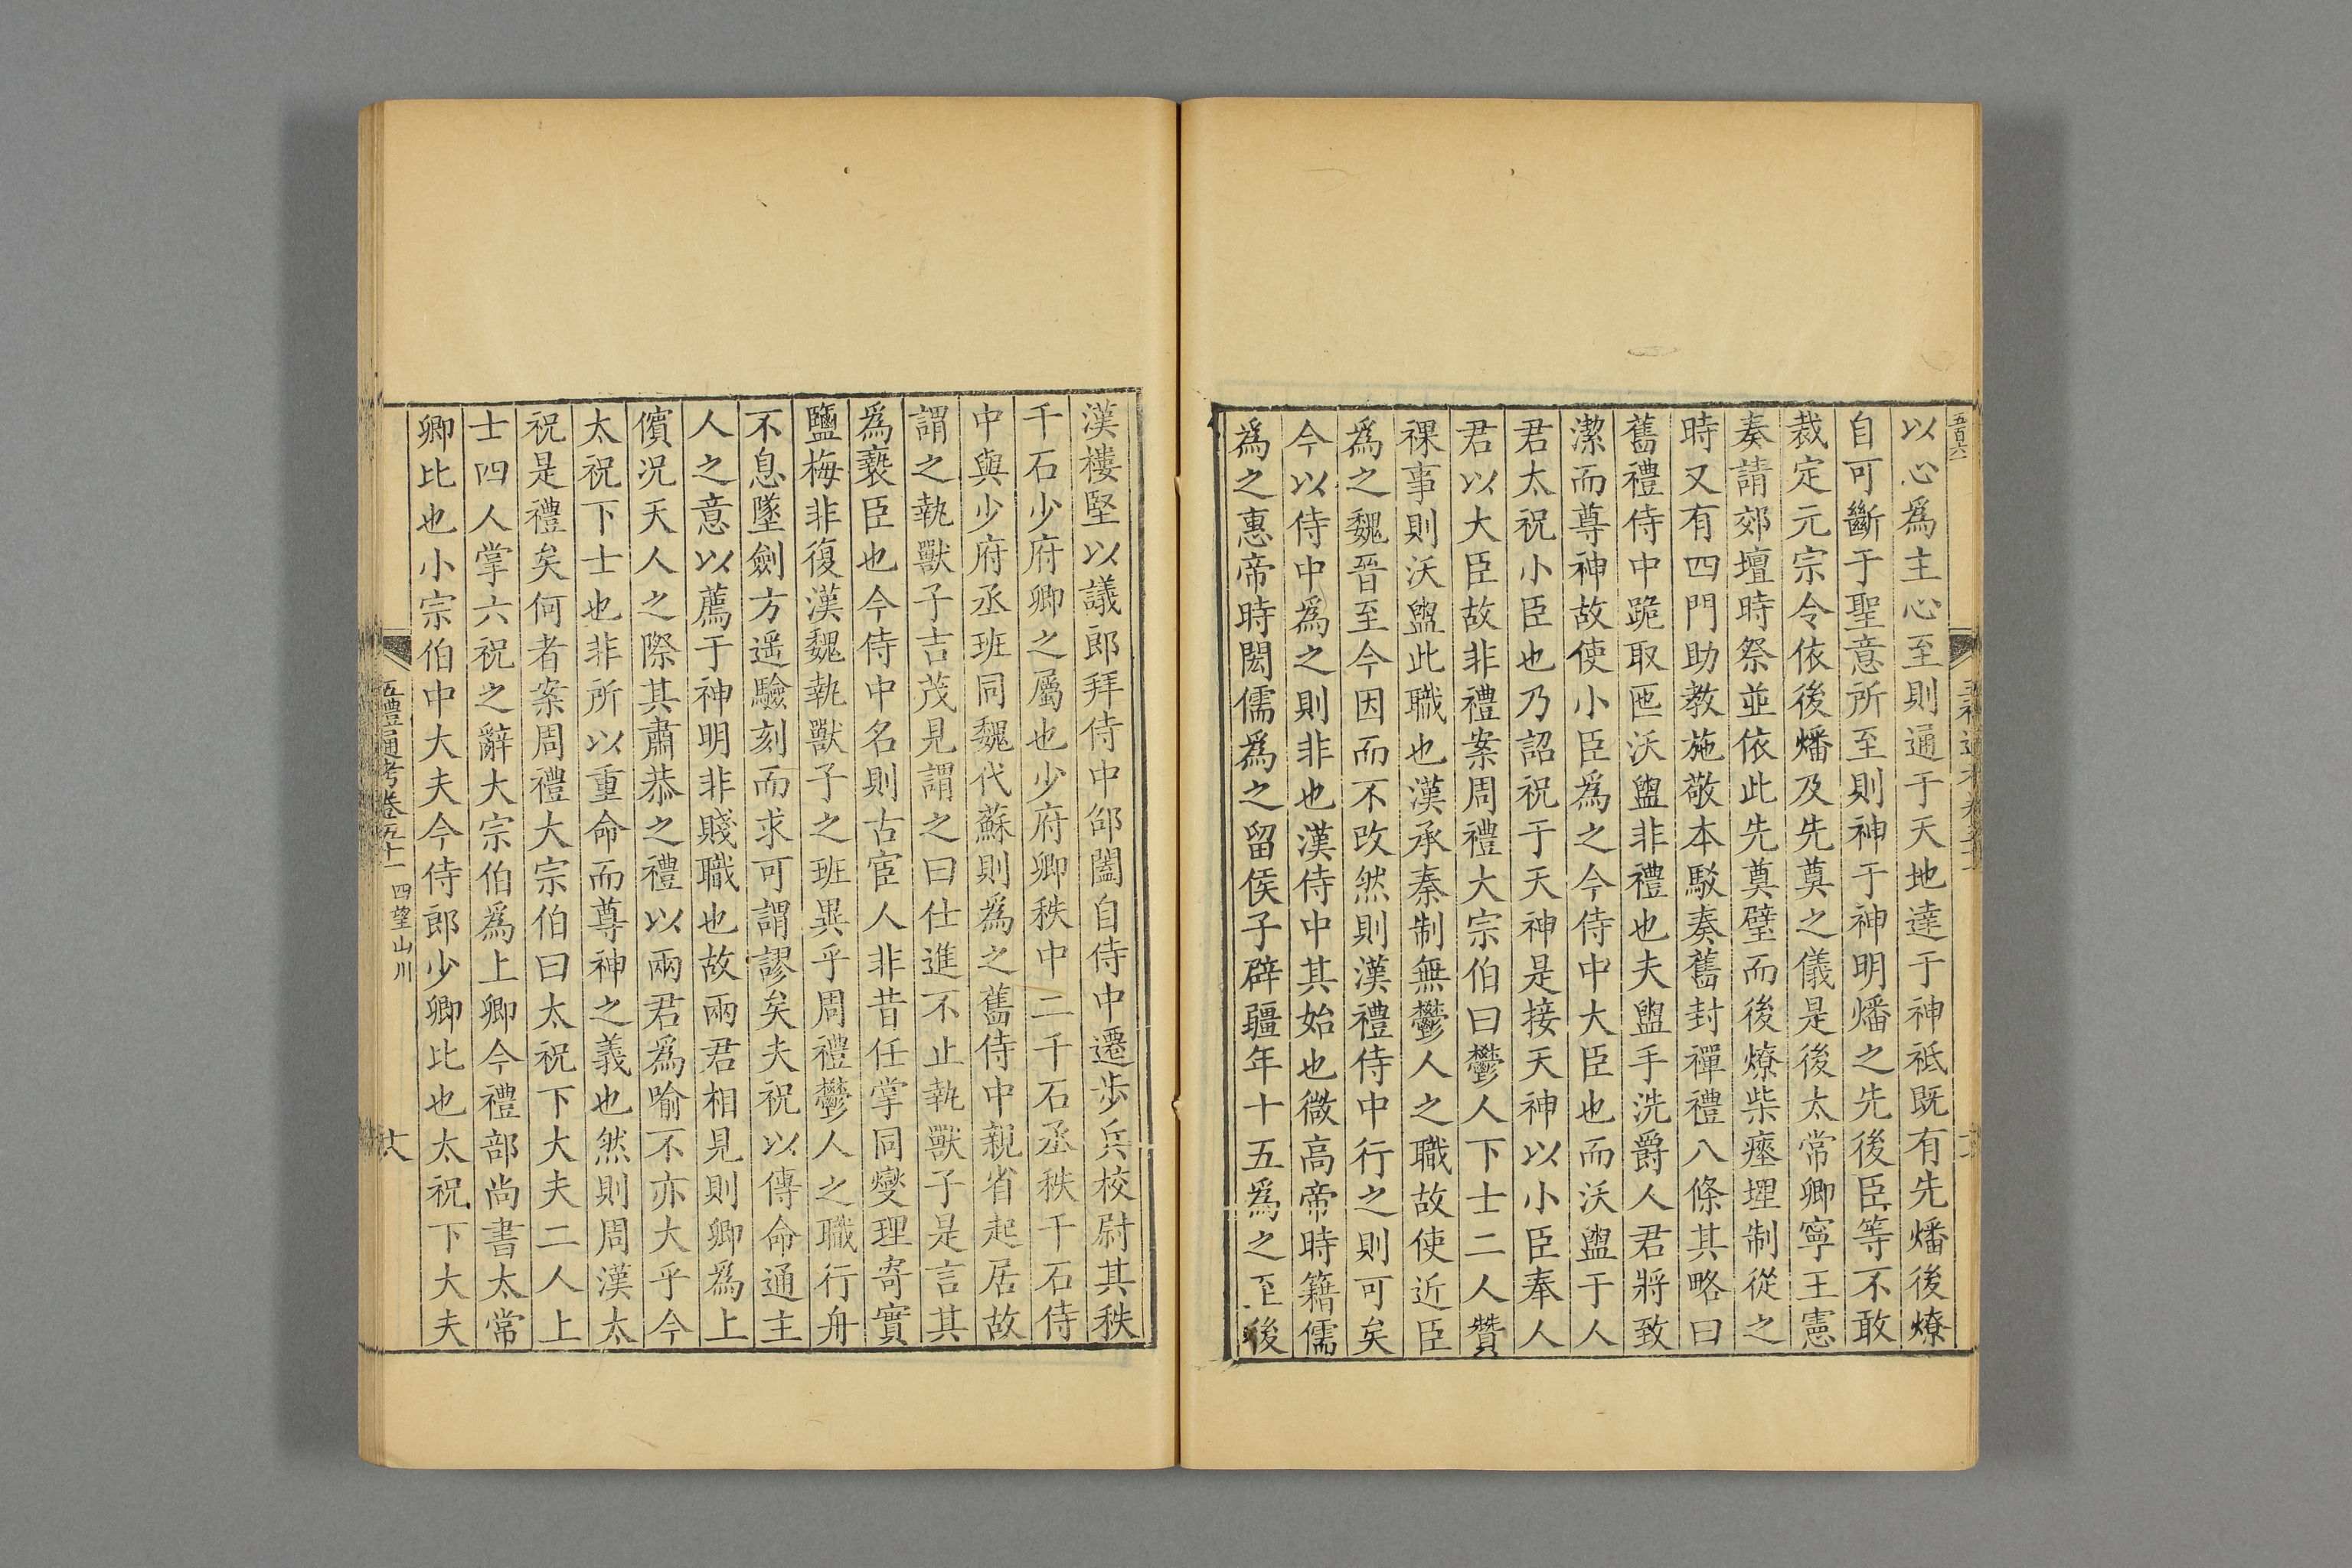 五百六
以心爲主心至則通于天地達于神祇既有先燔後燎
自可斷于聖意所至則神于神明燔之先後臣等不敢
裁定元宗令依後燔及先奠之儀是後太常卿寧王憲
奏請郊壇時祭並依此先奠璧而後燎柴瘞埋制從之
時又有四門助教施敬本駁奏舊封禪禮八條其略曰
舊禮侍中跪取匜沃盥非禮也夫盥手洗爵人君將致
潔而尊神故使小臣爲之今侍中大臣也而沃盥于人
君太祝小臣也乃詔祝于天神是接天神以小臣奉人
君以大臣故非禮案周禮大宗伯曰鬱人下士二人贊
祼事則沃盥此職也漢承秦制無鬱人之職故使近臣
爲之魏晉至今因而不改然則漢禮侍中行之則可矣
今以侍中爲之則非也漢侍中其始也微高帝時籍儒
爲之惠帝時閎儒爲之留侯子辟疆年十五爲之至後
漢樓堅以議郎拜侍中邰闔自侍中遷步兵校尉其秩
千石少府卿之屬也少府卿秩中二千石丞秩千石侍
中與少府丞班同魏代蘇則爲之舊侍中親省起居故
謂之執獸子吉茂見謂之曰仕進不止執獸子是言其
爲褻臣也今侍中名則古宦人非昔任掌同燮理寄實
鹽梅非復漢魏執獸子之班異乎周禮鬱人之職行舟
不息墜劍方遥驗刻而求可謂謬矣夫祝以傳命通主
人之意以薦于神明非賤職也故兩君相見則卿爲上
儐況天人之際其肅恭之禮以兩君爲喻不亦大乎今
太祝下士也非所以重命而尊神之義也然則周漢太
祝是禮矣何者案周禮大宗伯曰太祝下大夫二人上
士四人掌六祝之辭大宗伯爲上卿今禮部尚書太常
卿比也小宗伯中大夫今侍郎少卿比也太祝下大夫
五禮通考卷五十一 四望山川